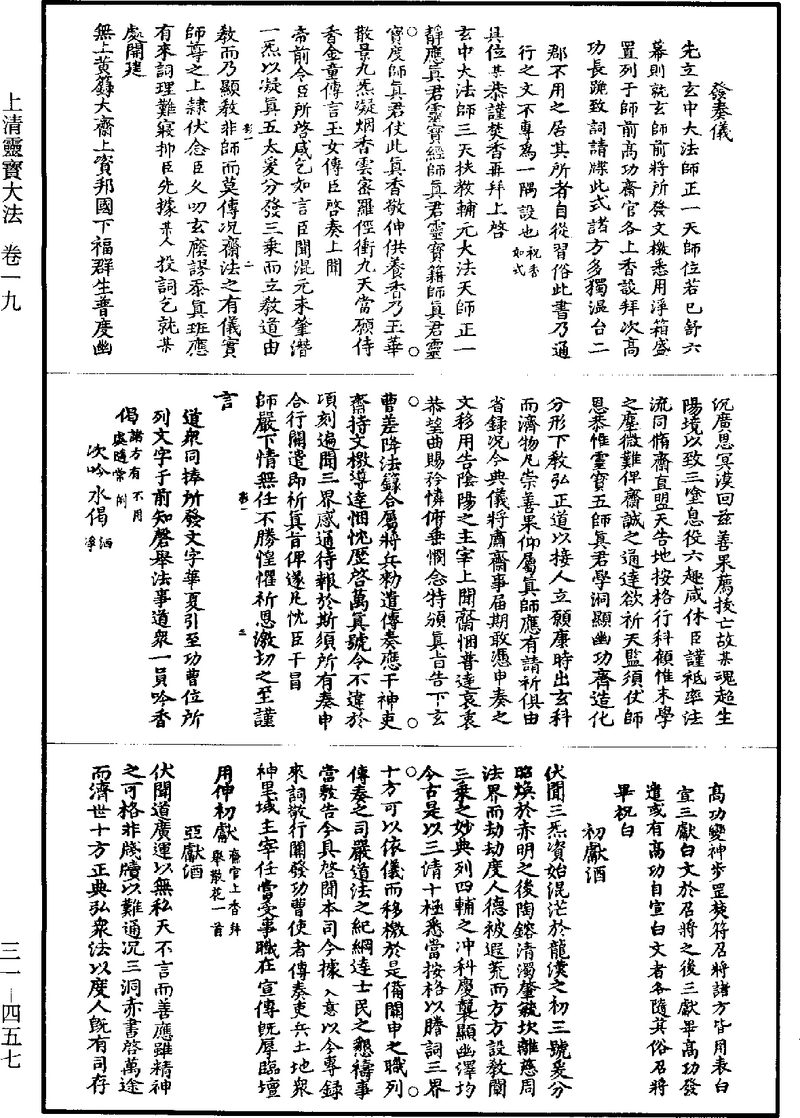 上清靈寶大法　卷一九
三一—四五七
發奏儀
先立玄中大法師正一天師位若已舒六
幕則就玄師前將所發文檄悉用淨箱盛
置列于師前高功齋官各上香設拜次高
功長跪致詞請牒此式諸方多獨溫台二
郡不用之居其所者自從習俗此書乃通
行之文不專為一隅設也祝香如式
具位某恭謹焚香再拜上啓
玄中大法師三天扶教輔元大法天師正一
靜應真君靈寶經師真君靈寶籍師真君靈
寶度師真君仗此真香敬伸供養香乃玉華
散景九炁凝烟香雲密羅徑衝九天當願侍
香金童傳言玉女傳臣啓奏上聞
帝前令臣所啓咸乞如言臣聞混元未肇潛
一炁以凝真五太爰分發三乘而立教道由
教而乃顯教非師而莫傳況齋法之有儀實
師尊之上隸伏念臣久叨玄蔭謬忝真班應
有來詞理難寢抑臣先據某人投詞乞就某
處開建
無上黃籙大齋上資邦國下福群生普度幽
沉廣思冥漠回茲善果薦拔亡故某魂超生
陽境以致三塗息役六趣咸休臣謹祗率法
流同脩齋直盟天告地按格行科顧惟末學
之塵微難俾齋誠之通達欲祈天監須仗師
恩恭惟靈寶五師真君學洞顯幽功齊造化
分形下教弘正道以接人立願康時出玄科
而濟物凡崇善果仰屬真師應有請祈俱由
省錄況今典儀將肅齋事届期敢憑申奏之
文移用告陰陽之主宰上聞齋悃普達衷衷
恭望曲賜矜憐俯垂憫念特頒真旨告下玄
曹差降法籙合屬將兵勑遣傳奏應干神吏
齋持文檄導達悃忱歷啓萬真號令不違於
頃刻遍聞三界感通待報於斯須所有奏申
合行關遣即祈真旨俾遂凡忱臣干冒
師嚴下情無任不勝惶懼祈恩激切之至謹
言
道衆同捧所發文字華夏引至功曹位所
列文字于前知磬舉法事道衆一員吟香
偈諸方有不用處隨常例
次吟水偈洒淨
高功變神步罡焚符召將諸方皆用表白
宣三獻白文於召將之後三獻畢高功發
遣或有高功自宣白文者各隨其俗召將
畢祝白
初獻酒
伏聞三炁資始混茫於龍漢之初三號爰分
昭煥於赤明之後陶鎔清濁肇毓坎離慈周
法界而劫劫度人德被遐荒而方方設教闡
三乘之妙典列四輔之冲科慶襲顯幽澤均
今古是以三清十極悉當按格以騰詞三界
十方可以依儀而移檄於是備關申之職列
傳奏之司嚴道法之紀綱達士民之懇禱事
當敷告今具啓聞本司今據入意以今專錄
來詞敬行關發功曹使者傳奏吏兵土地衆
神里域主宰任當受事職在宣傳既辱臨壇
用伸初獻齋官上香拜舉散花一首
亞獻酒
伏聞道廣運以無私天不言而善應雖精神
之可格非牋牘以難通況三洞赤書啓萬途
而濟世十方正典弘衆法以度人既有司存